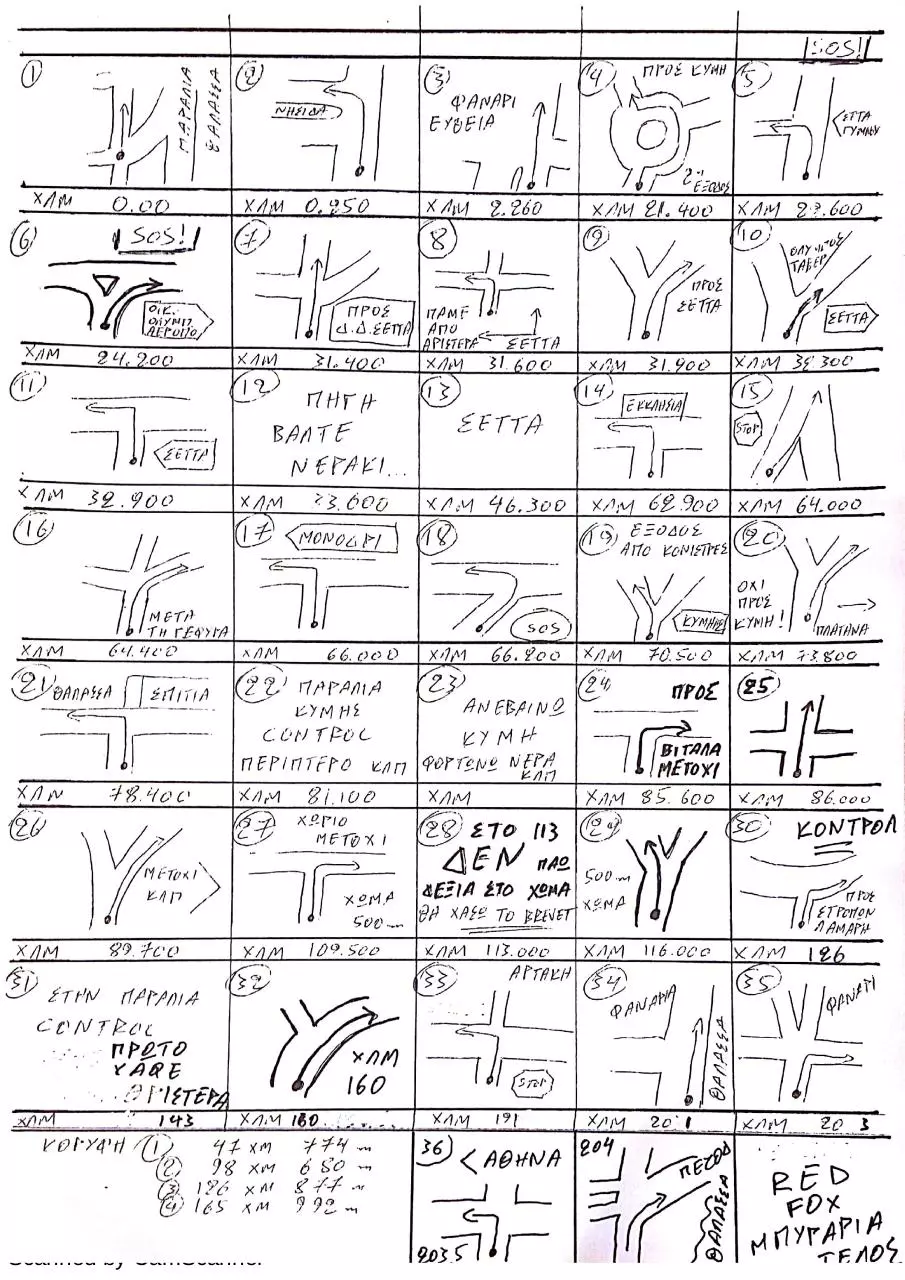 SOS!
1
ΠΑΡΑΛΙΑ
ΘΑΛΑΣΣΑ
ΧΛΜ 0.00
2
ΝΗΣΙΔΑ
ΧΛΜ 0.250
3
ΦΑΝΑΡΙ
ΕΥΘΕΙΑ
ΧΛΜ 2.260
4
ΠΡΟΣ ΚΥΜΗ
2η
ΕΞΟΔΟΣ
ΧΛΜ 21.400
5
ΣΕΤΤΑ
ΧΛΜ 23.600
6
SOS!
ΟΙΚ.
ΟΛΥΜΠ
ΧΛΜ 24.200
7
ΠΡΟΣ
Δ.Δ.ΣΕΤΤΑ
ΧΛΜ 31.400
8
ΠΑΜΕ
ΑΠΟ
ΑΡΙΣΤΕΡΑ
ΣΕΤΤΑ
ΧΛΜ 31.600
9
ΠΡΟΣ
ΣΕΤΤΑ
ΧΛΜ 31.900
10
ΤΑΒΕΡ
ΣΕΤΤΑ
ΧΛΜ 32.300
11
ΣΕΤΤΑ
ΧΛΜ 32.900
12
ΠΗΓΗ
ΒΑΛΤΕ
ΝΕΡΑΚΙ...
ΧΛΜ 33.600
13
ΣΕΤΤΑ
ΧΛΜ 46.300
14
ΕΚΚΛΗΣΙΑ
ΧΛΜ 62.900
15
STOP
ΧΛΜ 64.000
16
ΜΕΤΑ
ΤΗ ΓΕΦΥΡΑ
ΧΛΜ 64.400
17
ΜΟΝΟΔΡΙ
ΧΛΜ 66.000
18
SOS
ΧΛΜ 66.200
19
ΕΞΟΔΟΣ
ΑΠΟ ΚΟΝΙΣΤΡΕΣ
ΚΥΜΗΣ
ΧΛΜ 70.500
20
ΟΧΙ
ΠΡΟΣ
ΚΥΜΗ!
ΠΛΑΤΑΝΑ
ΧΛΜ 73.800
21
ΘΑΛΑΣΣΑ
ΣΠΙΤΙΑ
ΧΛΜ 78.400
22
ΠΑΡΑΛΙΑ
ΚΥΜΗΣ
CONTROL
ΠΕΡΙΠΤΕΡΟ ΚΛΠ
ΧΛΜ 81.100
23
ΑΝΕΒΑΙΝΩ
ΚΥΜΗ
ΦΟΡΤΩΝΩ ΝΕΡΑ
ΚΛΠ
ΧΛΜ
24
ΠΡΟΣ
ΒΙΤΑΛΑ
ΜΕΤΟΧΙ
ΧΛΜ 85.600
25
ΧΛΜ 86.000
26
ΜΕΤΟΧΙ
ΚΛΠ
ΧΛΜ 89.700
27
ΧΩΡΙΟ
ΜΕΤΟΧΙ
ΧΩΜΑ
500 m
ΧΛΜ 109.500
28
ΣΤΟ 113
ΔΕΝ ΠΑΩ
ΔΕΞΙΑ ΣΤΟ ΧΩΜΑ
ΘΑ ΧΑΣΩ ΤΟ BREVET
ΧΛΜ 113.000
29
500 m
ΧΩΜΑ
ΧΛΜ 116.000
30
ΚΟΝΤΡΟΛ
ΠΡΟΣ
ΣΤΡΟΠΩΝ
ΛΑΜΑΡΗ
ΧΛΜ 126
31
ΣΤΗΝ ΠΑΡΑΛΙΑ
CONTROL
ΠΡΩΤΟ
ΚΑΦΕ
ΑΡΙΣΤΕΡΑ
ΧΛΜ 143
32
ΧΛΜ
160
ΧΛΜ 160
33
ΑΡΤΑΚΗ
STOP
ΧΛΜ 191
34
ΦΑΝΑΡΙΑ
ΘΑΛΑΣΣΑ
ΧΛΜ 201
35
ΦΑΝΑΡΙ
ΧΛΜ 203
ΚΟΡΥΦΗ 1 47 ΧΜ 774 m
2 98 ΧΜ 680 m
3 126 ΧΜ 877 m
4 165 ΧΜ 992 m
36
< ΑΘΗΝΑ
203.5
204
ΠΕΖΟΔ
ΘΑΛΑΣΣΑ
RED
FOX
ΜΠΥΡΑΡΙΑ
ΤΕΛΟΣ
Scanned by CamScanner